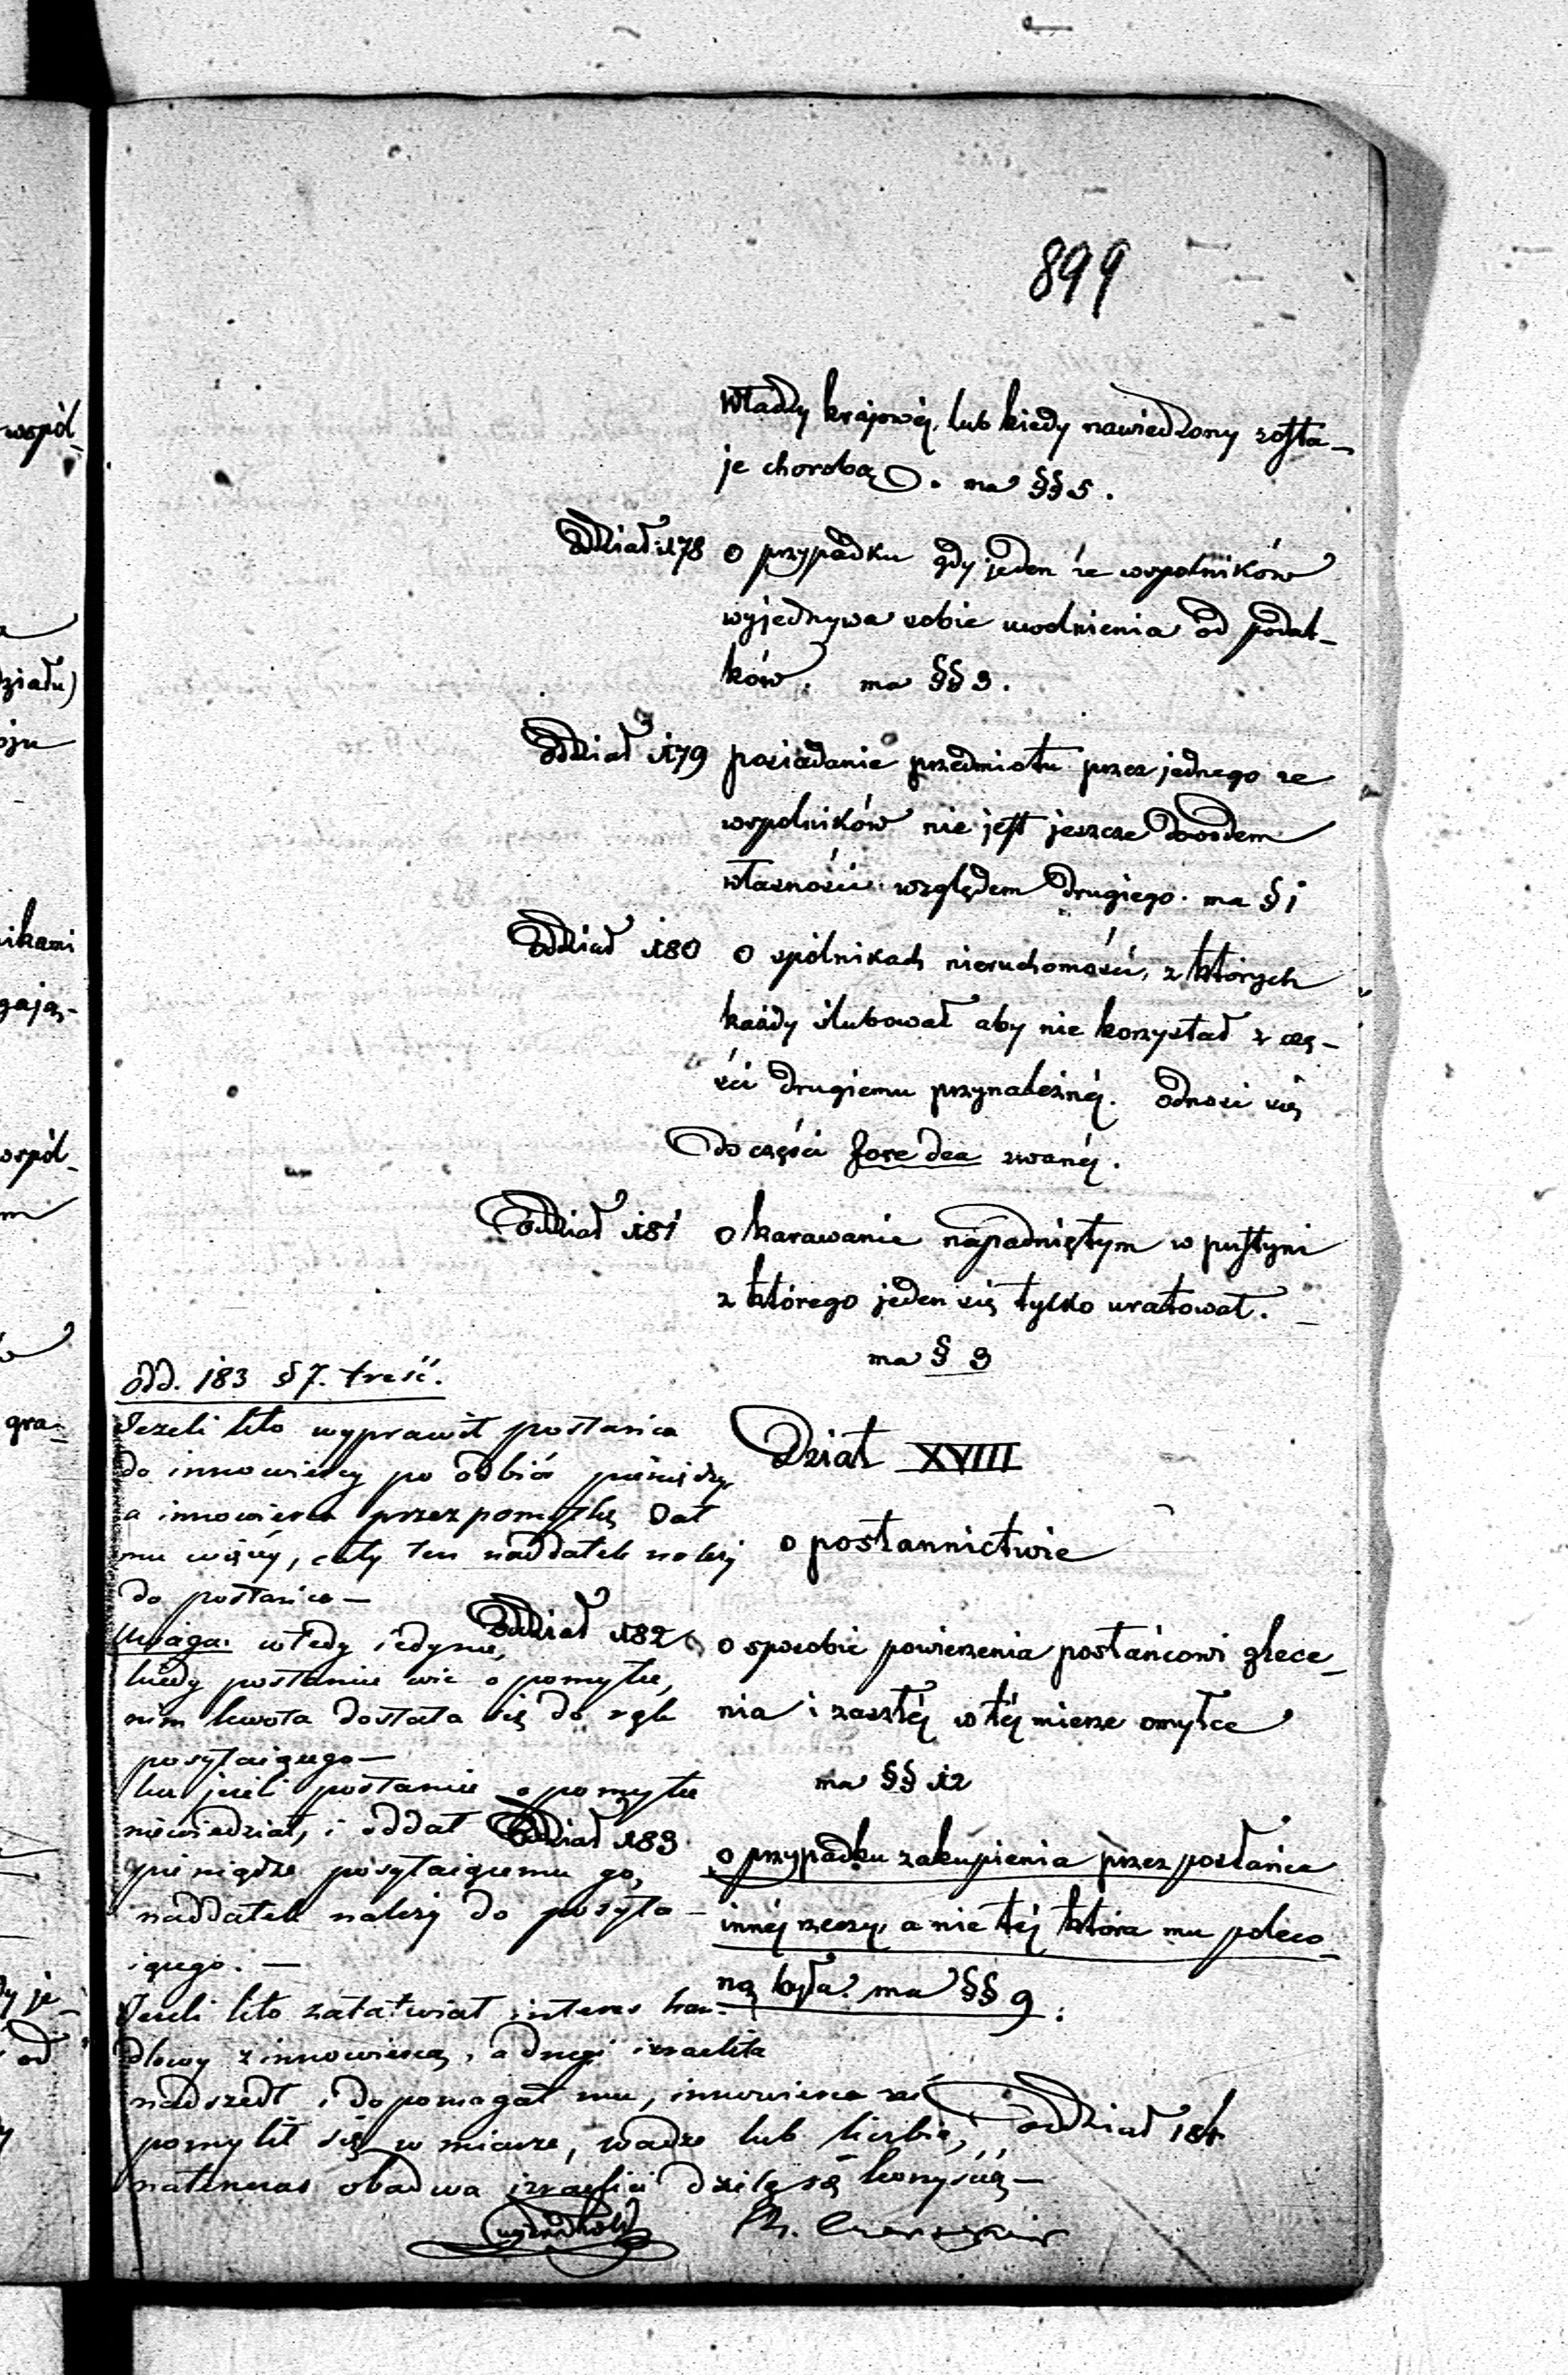 899
władzy krajowéj, lub kiedy nawiedzony zosta-
je chorobą. ma §§ 5.
Oddział 178 o przypadku gdy jeden ze wspolników
wyjednywa sobie uwolnienia od podat-
ków. ma §§ 3.
Oddział 179 posiadanie przedmiotu przez jednego ze
wspolników nie jest jeszcze dowodem
własności względem drugiego. ma § 1
Oddział 180 o spólnikach nieruchomości, z których
każdy ślubował aby nie korzystał z czę-
ści drugiemu przynależnéj. Odnosi się
do części Jore dea zwanéj.
Oddział 181 o karawanie napadniętym w pustyni
z którego jeden się tylko uratował.
ma § 3
Dział XVIII
o posłannictwie
Oddział 182 o sposobie powierzenia posłańcowi zlece-
nia i zaszłéj w téj mierze omyłce
ma §§ 12
Oddział 183 o przypadku zakupienia przez posłańca
innéj rzeczy, a nie téj która mu poleco-
ną była. ma §§ 9.
Oddział 184
odd. 183 § 7. treść.
Jeżeli kto wyprawił posłańca
do innowiercy po odbiór pieniędzy,
a innowierca przez pomyłkę dał
mu więcéj, cały ten naddatek należy
do posłańca —
Uwaga: wtedy jedynie,
kiedy posłaniec wie o pomyłce,
nim kwota dostała się do rąk
posyłaiącego —
posłaniec o pomyłce
niewiedział, i oddał
pieniądze posyłaiącemu go,
naddatek należy do posyła-
iącego. —
Jeżeli kto załatwiał interes han-
dlowy z innowiercą, a drugi izraelita
nadszedł i dopomagał mu, innowierca zaś
pomylił się w mierze, wadze lub liczbie,
natenczas obadwa izraelici dzielą się korzyścią —